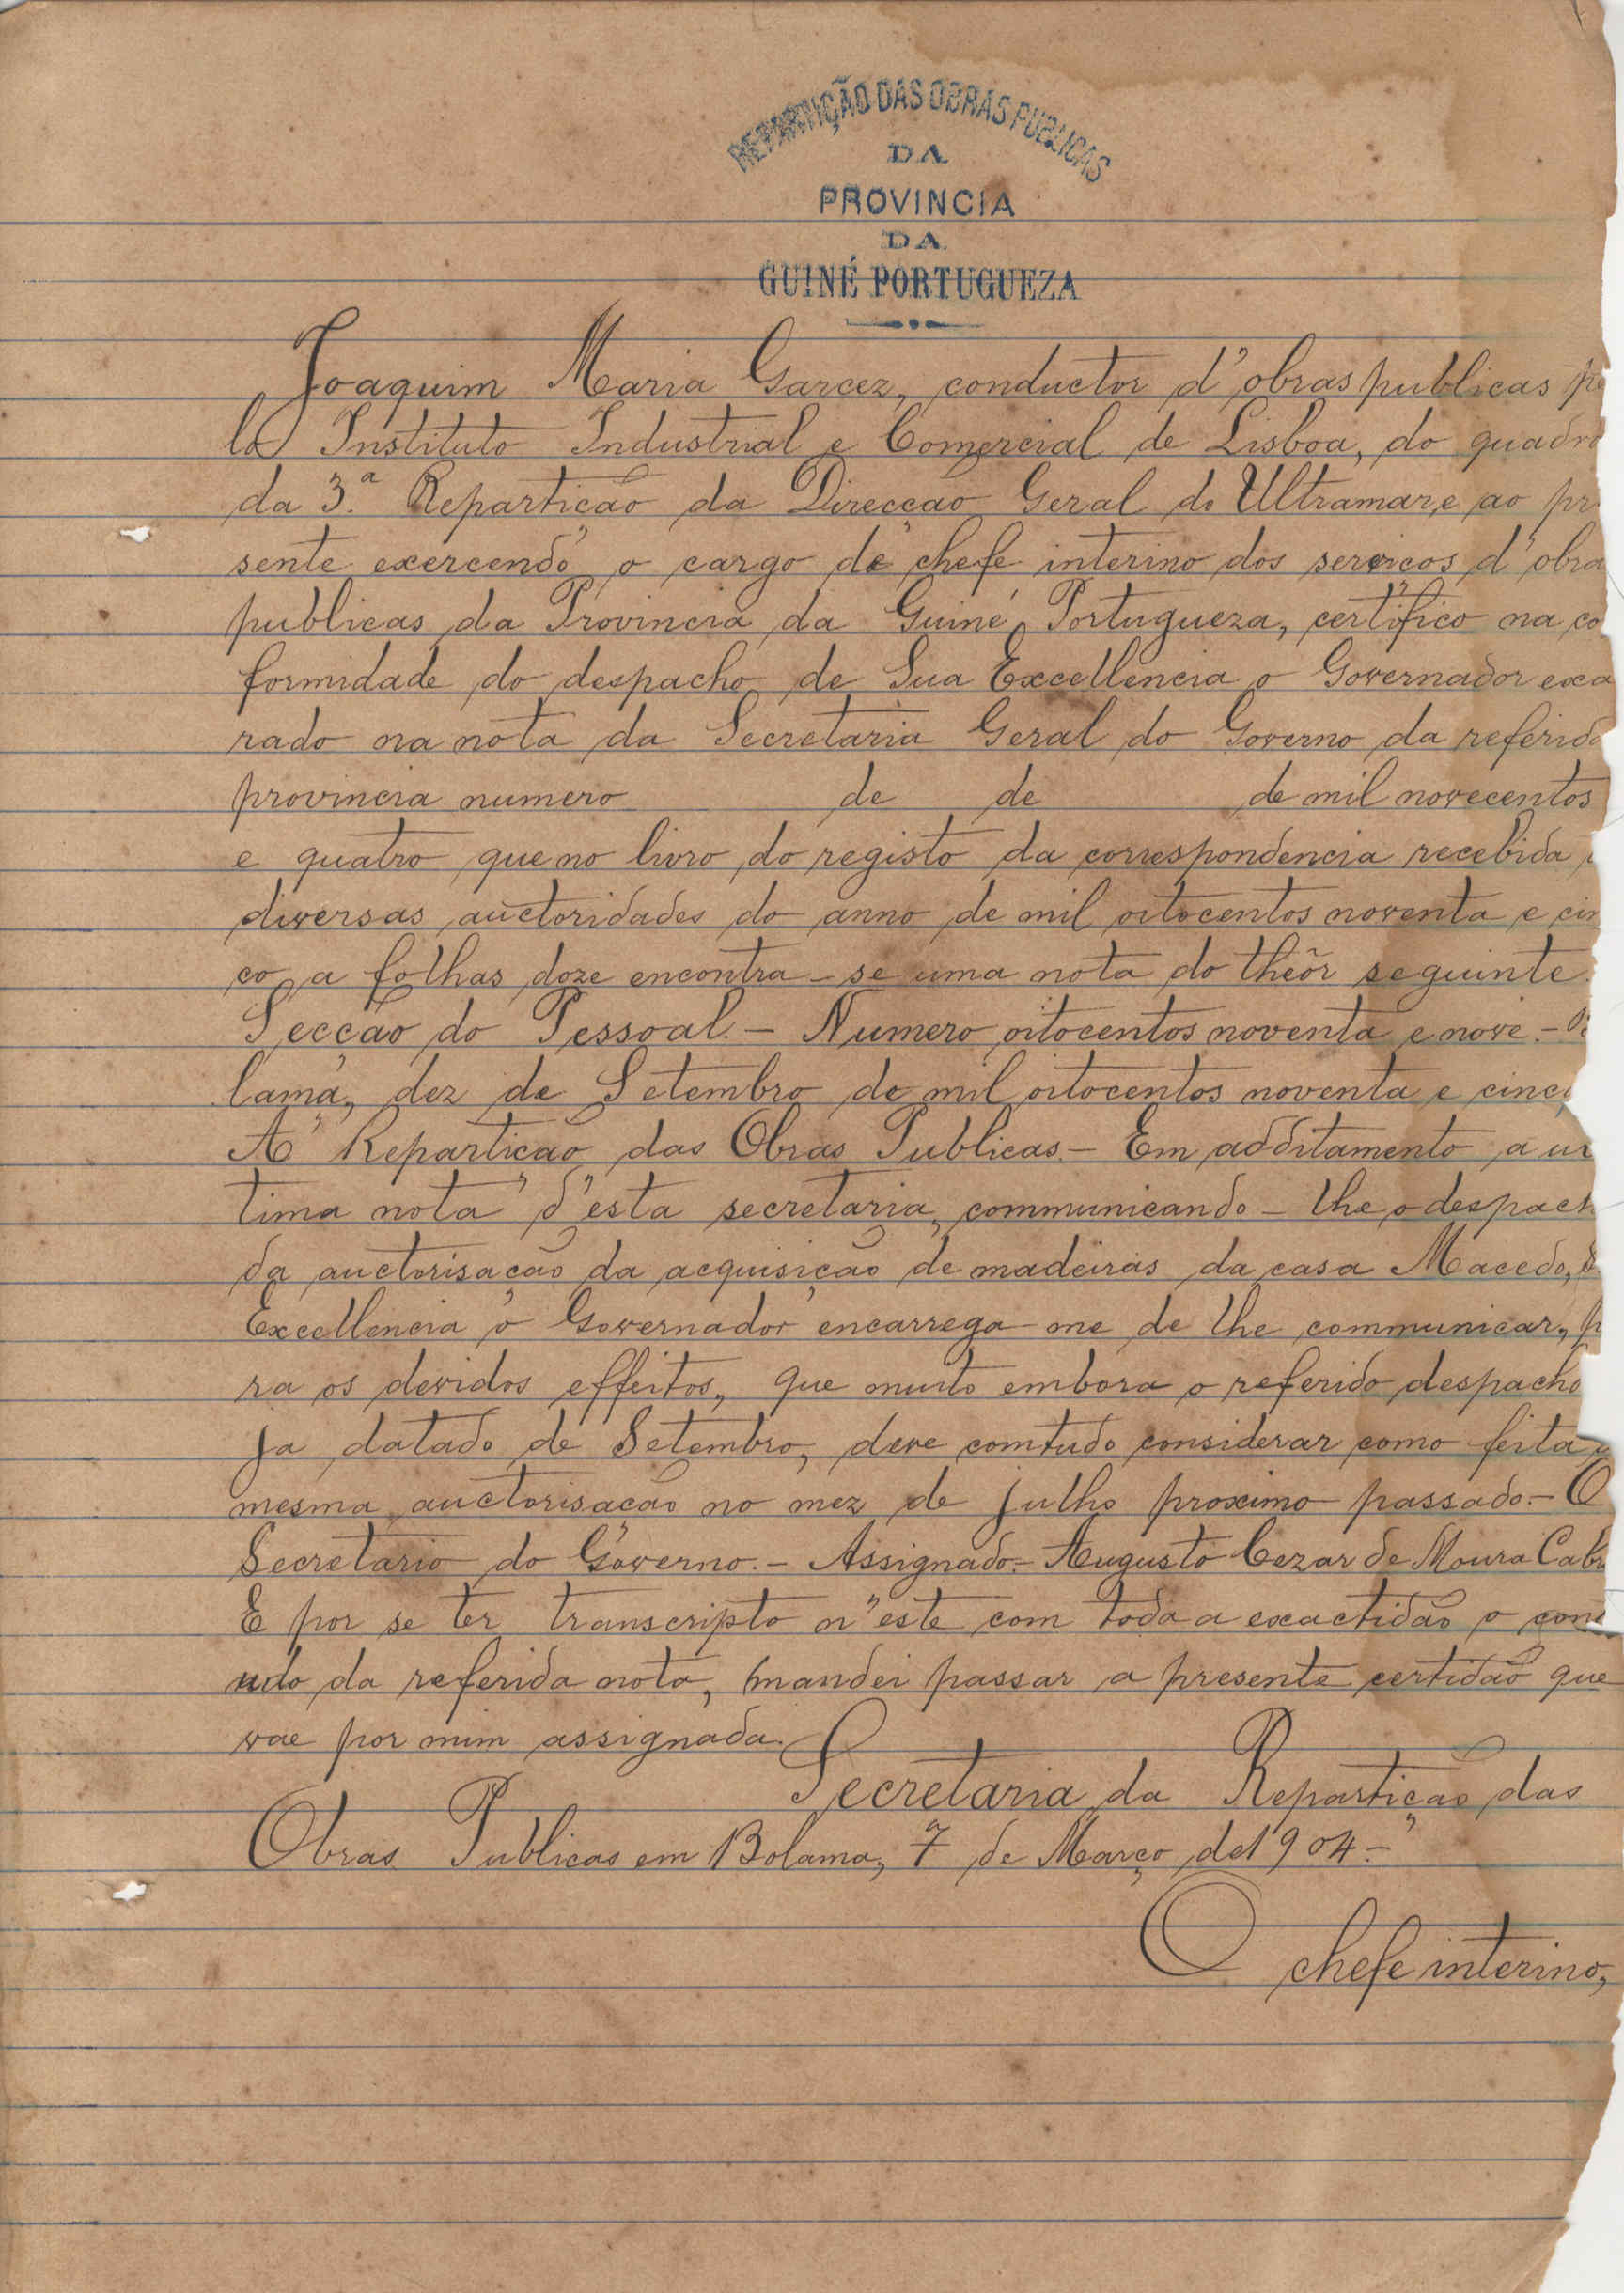 REPARTIÇÃO DAS OBRAS PUBLICAS
DA
PROVINCIA
DA
GUINÉ PORTUGUEZA
Joaquim Maria Garcez, conductor d'obras publicas pe
lo Instituto Industrial e Comercial de Lisboa, do quadro
da 3.ª Repartição da Direcção Geral do Ultramar, e ao pr
sente exercendo o cargo de chefe interino dos serviços d'obra
publicas da Provincia da Guiné Portugueza, certifico na co
formidade do despacho de Sua Excellencia o Governador exa
rado na nota da Secretaria Geral do Governo da referida
provincia numero de de de mil novecentos
e quatro que no livro do registo da correspondencia recebida
diversas auctoridades do anno de mil oitocentos noventa e cin
co a folhas doze encontra-se uma nota do theôr seguinte.
Secção do Pessoal.- Numero oitocentos noventa e nove.-
lama, dez de Setembro de mil oitocentos noventa e cinco
A' Repartição das Obras Publicas.- Em additamento a
tima nota d'esta secretaria, communicando-lhe o despach
da auctorisação da acquisição de madeiras da casa Macedo,
Excellencia o Governador encarrega-me de lhe communicar, p
ra os devidos effeitos, que muito embora o referido despacho
ja datado de Setembro, deve comtudo considerar como feita
mesma auctorisação no mez de julho proximo passado.- O
Secretario do Governo.- Assignado.- Augusto Cezar de Moura Cabr
E por se ter transcripto n'este com toda a exactidão o con
udo da referida nota, mandei passar a presente certidão que
vae por mim assignada.
Secretaria da Repartição das
Obras Publicas em Bolama, 7 de Março de 1904.-
O chefe interino,